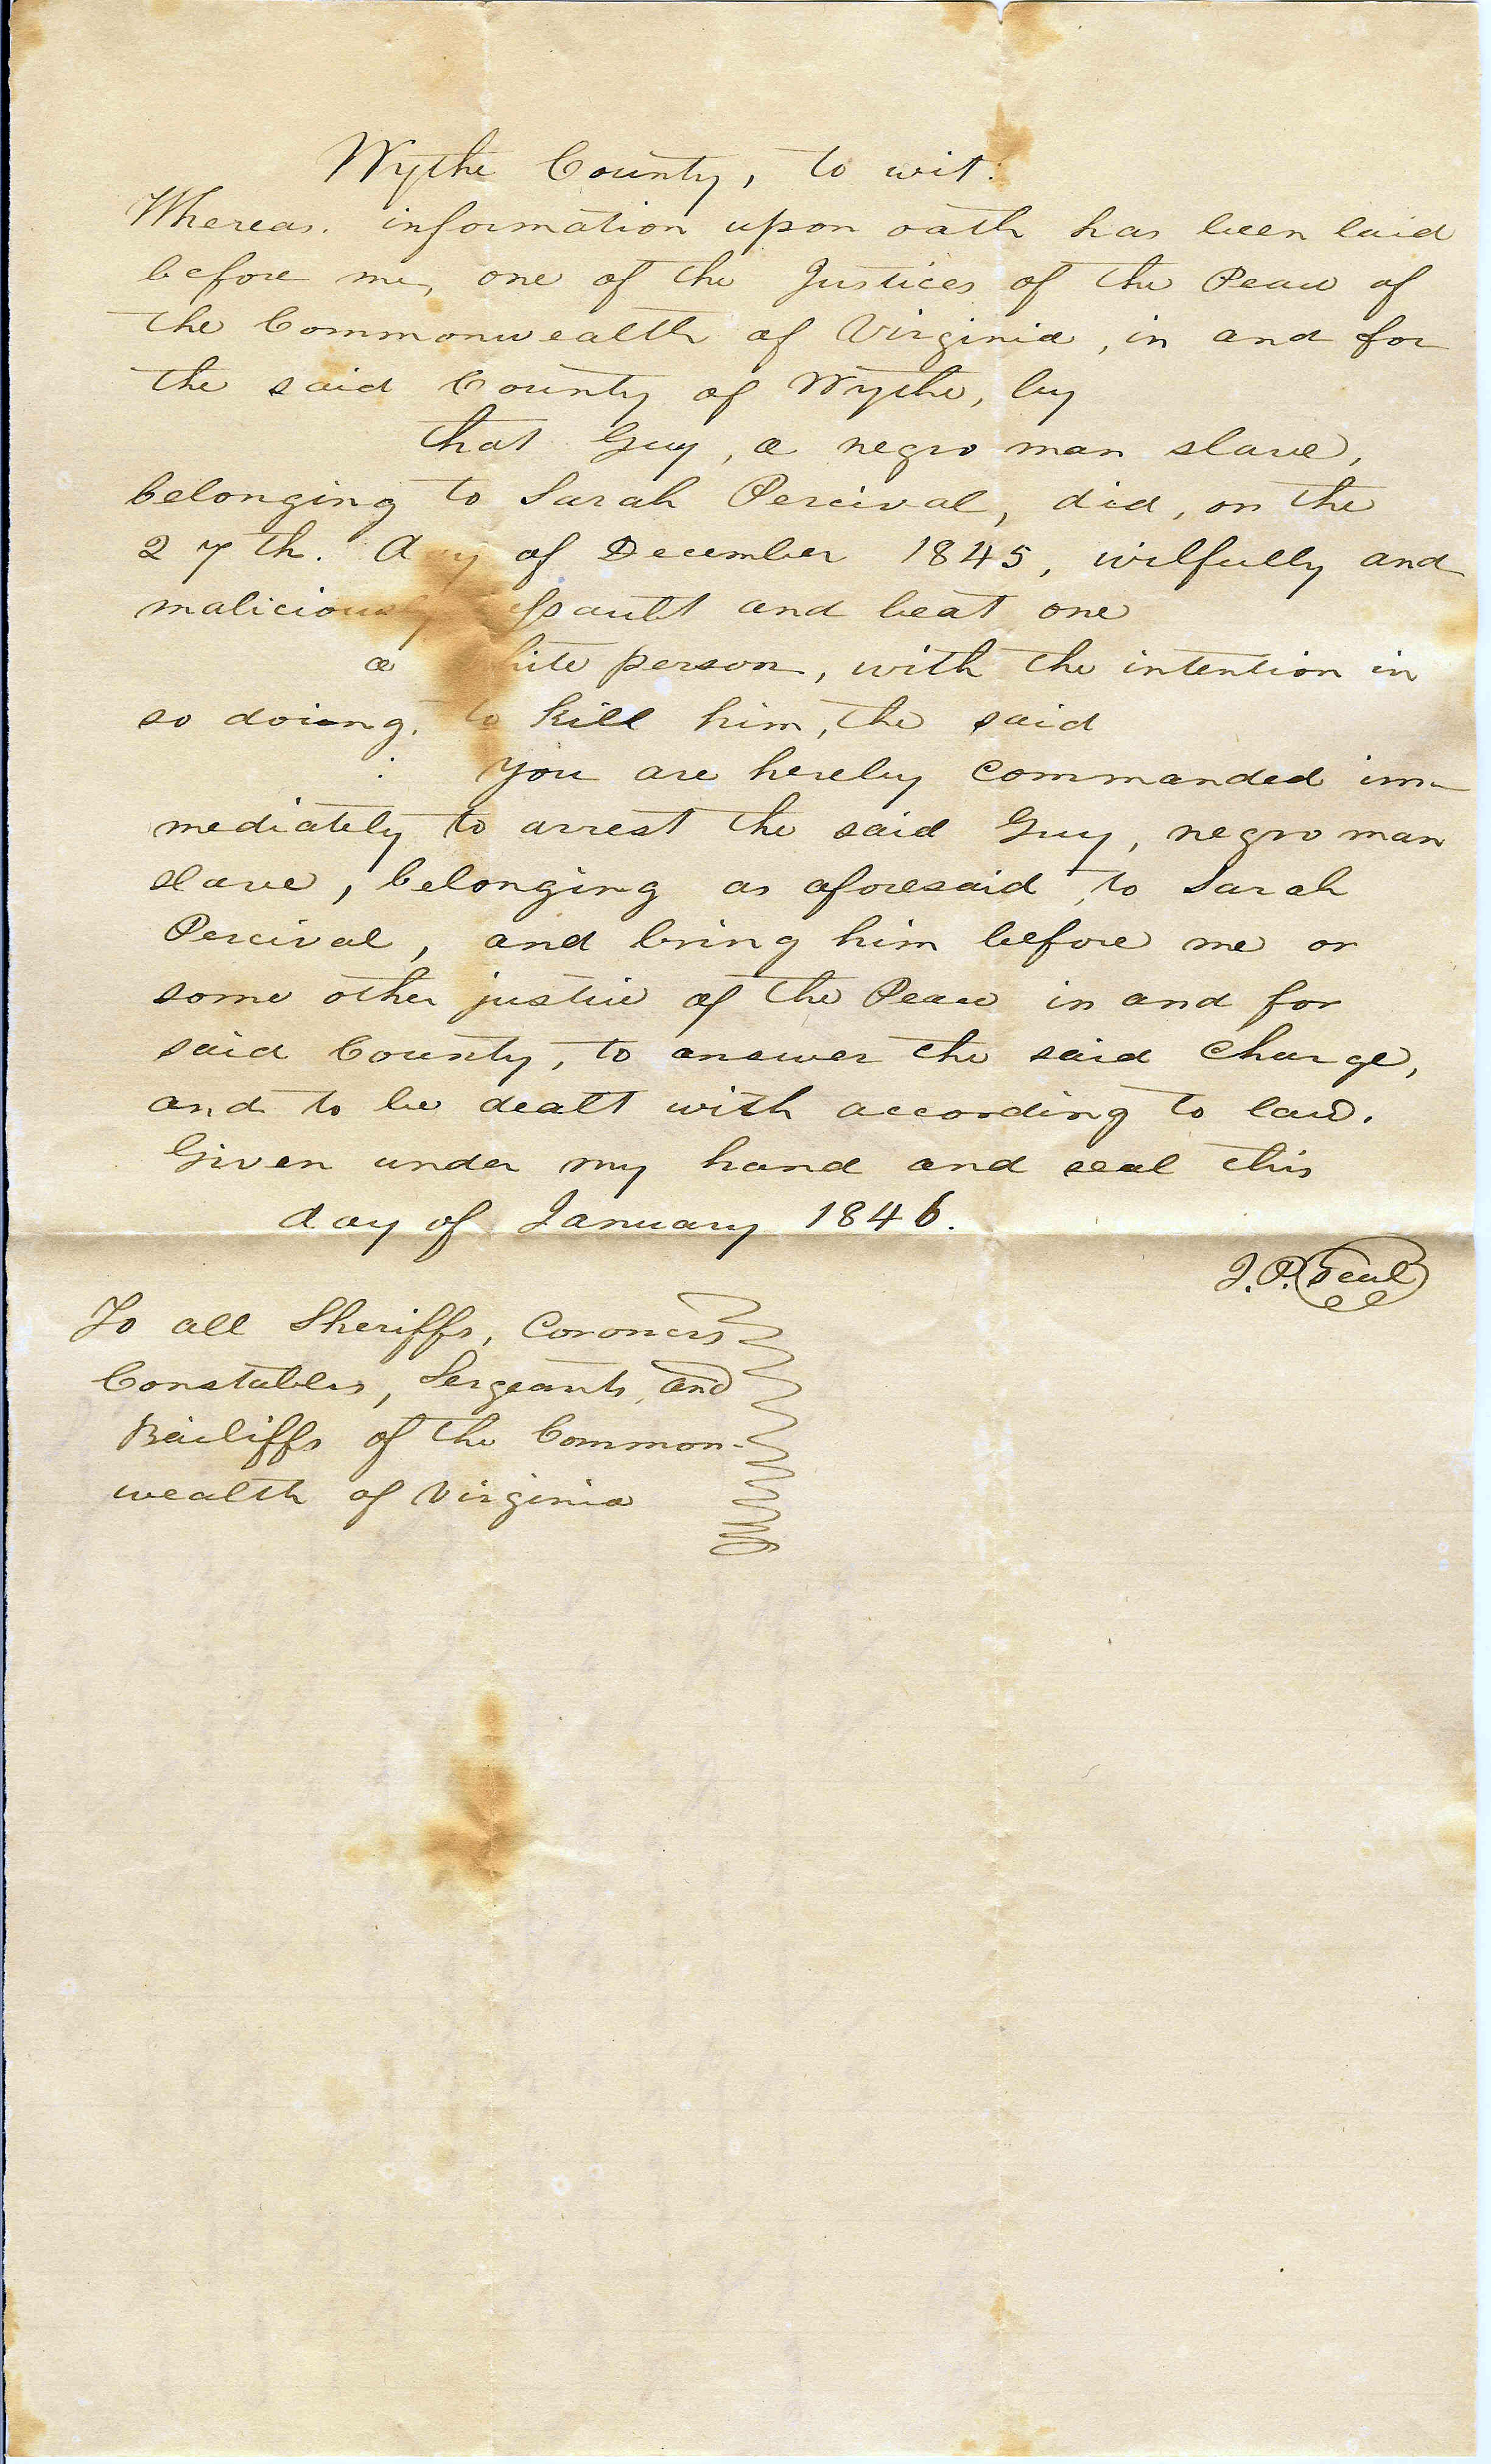 Wythe County, to wit:
Whereas. information upon oath has been laid
before me, one of the Justices of the Peace of
the Commonwealth of Virginia, in and for
the said County of Wythe, by
that Guy, a negro man slave,
belonging to Sarah Percival, did, on the
27th. day of December 1845, wilfully and
maliciously assault and beat one
a white person, with the intention in
so doing, to kill him, the said
: You are hereby commanded im-
mediately to arrest the said Guy, negro man
slave, belonging as aforesaid, to Sarah
Percival, and bring him before me or
some other justice of the Peace in and for
said County, to answer the said charge,
and to be dealt with according to law.
Given under my hand and seal this
day of January 1846.
J.P. Seal
To all Sheriffs, Coroners
Constables, Sergeants, and
Bailiffs of the Common-
wealth of Virginia